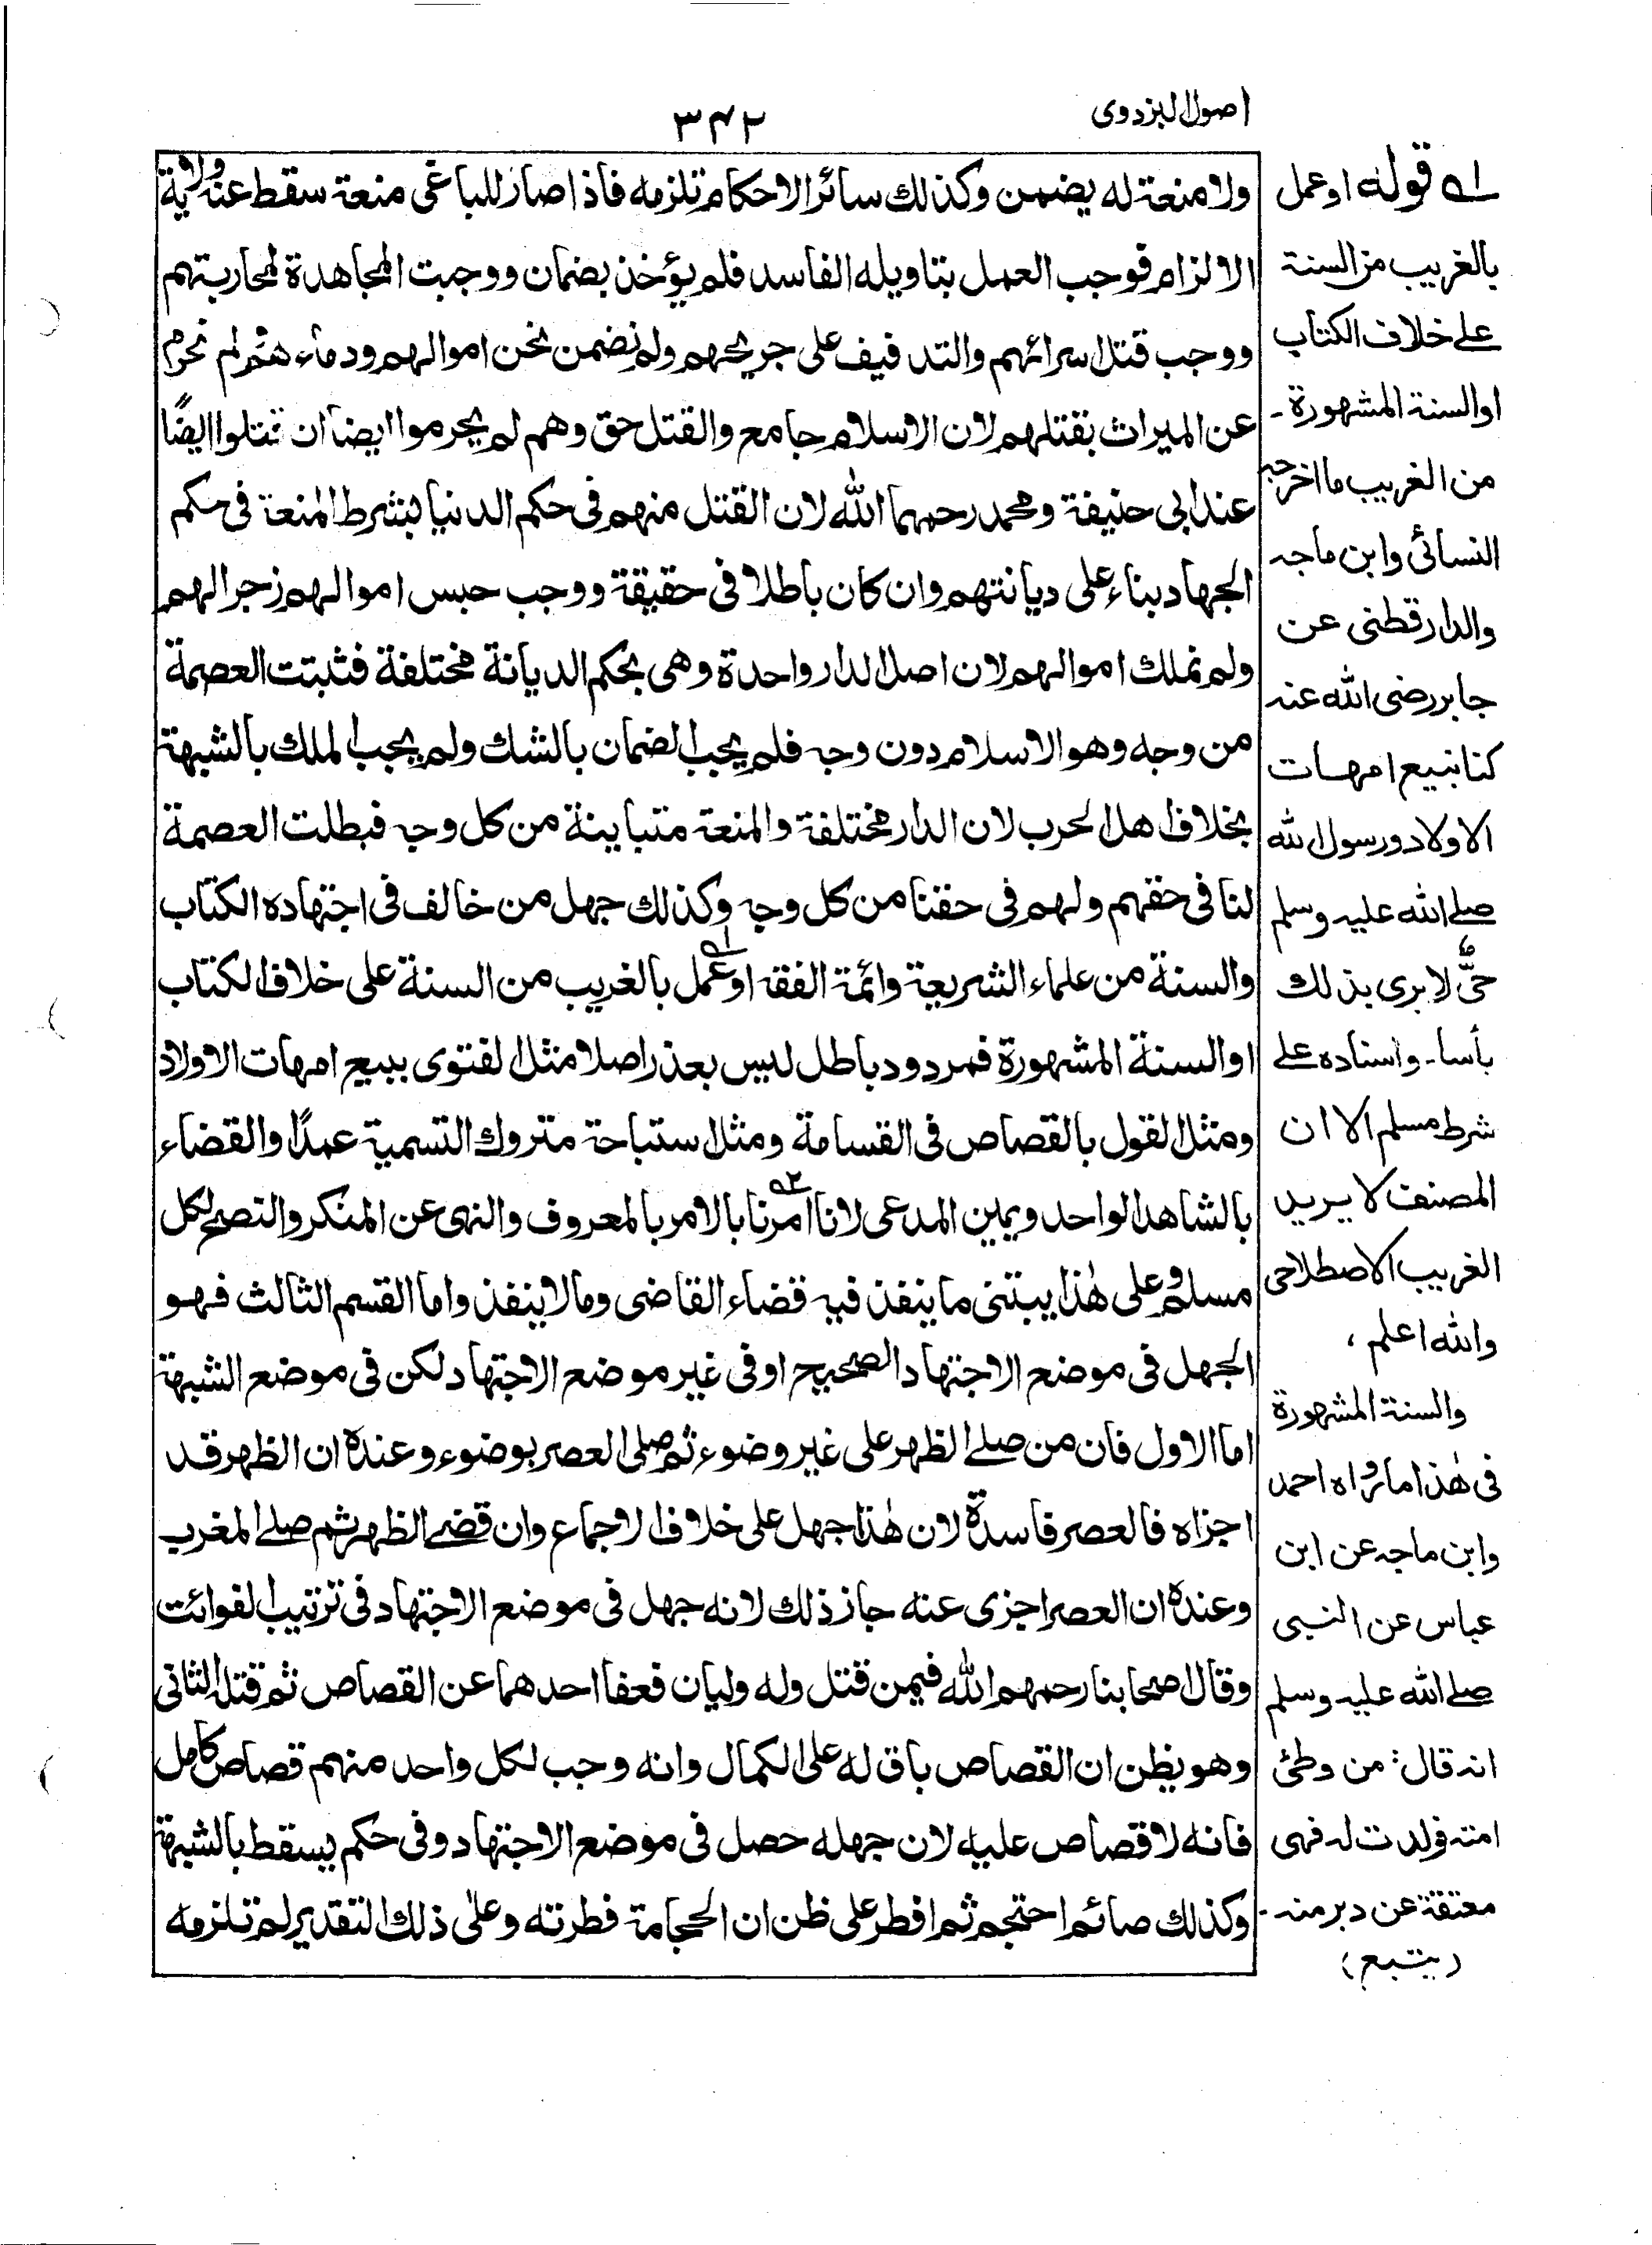 اصول البزدوی
۳۴۲
ولا منعة له يضمن وكذلك سائر الاحكام تلزمه فاذا صار للباغی منعة سقط عنه ولاية
الالزام فوجب العمل بتاويله الفاسد فلم يؤخذ بضمان ووجبت المجاهدة لمحاربتهم
ووجب قتل سرائهم والتدفيف على جريحهم ولم نضمن نحن اموالهم ودماءهم ولم نحرم
عن الميراث بقتلهم لان الاسلام جامع والقتل حق وهم لم يحرموا ايضا ان قتلوا ايضًا
عند ابی حنيفة ومحمد رحمهما الله لان القتل منهم فی حكم الدنيا بشرط المنعة فی حكم
الجهاد بناء على ديانتهم وان كان باطلا فی حقيقة ووجب حبس اموالهم زجرا لهم
ولم نملك اموالهم لان اصل الدار واحدة وهی بحكم الديانة مختلفة فثبتت العصمة
من وجه وهو الاسلام دون وجه فلم يجب الضمان بالشك ولم يجب الملك بالشبهة
بخلاف اهل الحرب لان الدار مختلفة والمنعة متباينة من كل وجه فبطلت العصمة
لنا فی حقهم ولهم فی حقنا من كل وجه وكذلك جهل من خالف فی اجتهاده الكتاب
والسنة من علماء الشريعة وائمة الفقه او عمل بالغريب من السنة على خلاف الكتاب
او السنة المشهورة فمردود باطل ليس بعذر اصلا مثل الفتوى ببيع امهات الاولاد
ومثل القول بالقصاص فی القسامة ومثل استباحة متروك التسمية عمدًا والقضاء
بالشاهد الواحد ويمين المدعی لانا امرنا بالامر بالمعروف والنهی عن المنكر والنصح لكل
مسلم وعلى هٰذا يبتنی ما ينفذ فيه قضاء القاضی وما لا ينفذ واما القسم الثالث فهو
الجهل فی موضع الاجتهاد الصحيح او فی غير موضع الاجتهاد لكن فی موضع الشبهة
اما الاول فان من صلے الظهر على غير وضوء ثم صلى العصر بوضوء وعنده ان الظهر قد
اجزاه فالعصر فاسدة لان هٰذا جهل على خلاف الاجماع وان قضے الظهر ثم صلے المغرب
وعنده ان العصر اجزى عنه جاز ذلك لانه جهل فی موضع الاجتهاد فی ترتيب الفوائت
وقال اصحابنا رحمهم الله فيمن قتل وله وليان فعفا احدهما عن القصاص ثم قتل الثانی
وهو يظن ان القصاص باق له على الكمال وانه وجب لكل واحد منهم قصاص كامل
فانه لا قصاص عليه لان جهله حصل فی موضع الاجتهاد وفی حكم يسقط بالشبهة
وكذلك صائم احتجم ثم افطر على ظن ان الحجامة فطرته وعلى ذلك التقدير لم تلزمه
لـه قوله او عمل
بالغريب من السنة
علے خلاف الكتاب
او السنة المشهورة ـ
من الغريب ما اخرجه
النسائی وابن ماجه
والدارقطنی عن
جابر رضی الله عنه
كنا نبيع امهات
الاولاد ورسول الله
صلے الله عليه وسلم
حیٌّ لا يرى بذلك
بأسا ـ واسناده علے
شرط مسلم الا ان
المصنف لا يريد
الغريب الاصطلاحی
والله اعلم ،
والسنة المشهورة
فی هٰذا ما رواه احمد
وابن ماجه عن ابن
عباس عن النبی
صلے الله عليه وسلم
انه قال : من وطئ
امته فولدت له فهی
معتقة عن دبر منه ـ
( يتبع )